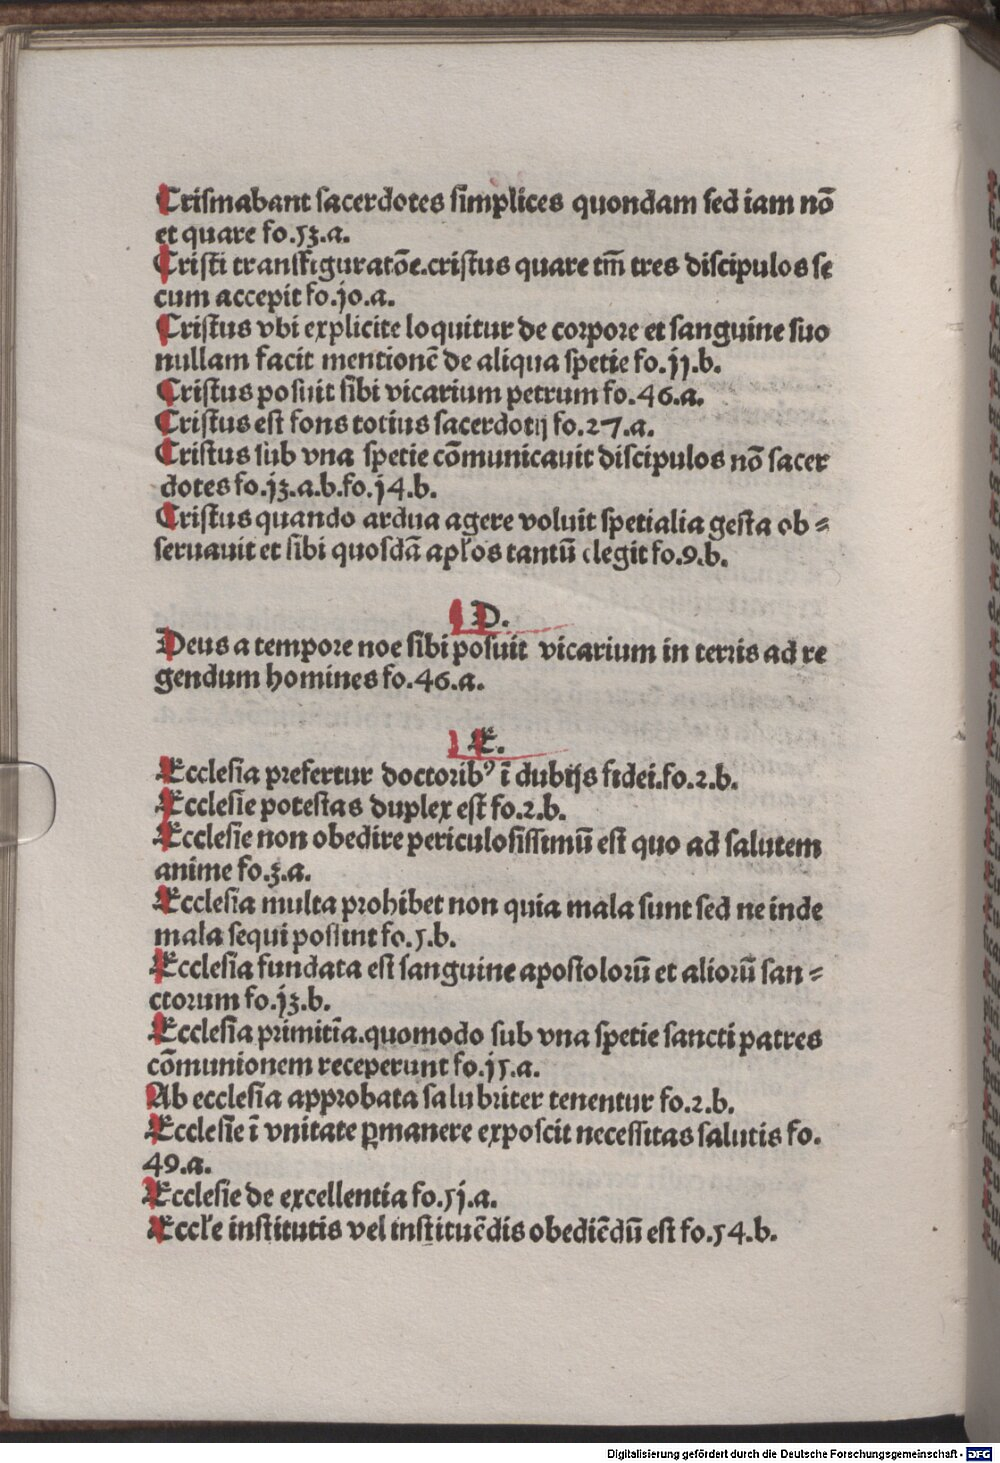 Crismabant sacerdotes simplices quondam sed iam nō
et quare fo.53.a.
Cristi transfiguratōe.cristus quare tm̄ tres discipulos se
cum accepit fo.j0.a.
Cristus vbi explicite loquitur de corpore et sanguine suo
nullam facit mentionē de aliqua spetie fo.jj.b.
Cristus posuit sibi vicarium petrum fo.46.a.
Cristus est fons totius sacerdotij fo.27.a.
Cristus sub vna spetie cōmunicauit discipulos nō sacer
dotes fo.j3.a.b.fo.j4.b.
Cristus quando ardua agere voluit spetialia gesta ob⸗
seruauit et sibi quosdā apl'os tantū elegit fo.9.b.
D.
Deus a tempore noe sibi posuit vicarium in terris ad re
gendum homines fo.46.a.
E.
Ecclesia prefertur doctoribꝰ ī dubijs fidei.fo.2.b.
Ecclesie potestas duplex est fo.2.b.
Ecclesie non obedire periculosissimū est quo ad salutem
anime fo.3.a.
Ecclesia multa prohibet non quia mala sunt sed ne inde
mala sequi possint fo.5.b.
Ecclesia fundata est sanguine apostolorū et aliorū san⸗
ctorum fo.j3.b.
Ecclesia primitīa.quomodo sub vna spetie sancti patres
cōmunionem receperunt fo.j5.a.
Ab ecclesia approbata salubriter tenentur fo.2.b.
Ecclesie ī vnitate ꝑmanere exposcit necessitas salutis fo.
49.a.
Ecclesie de excellentia fo.5j.a.
Eccl'e institutis vel instituēdis obediēdū est fo.54.b.
Digitalisierung gefördert durch die Deutsche Forschungsgemeinschaft - DFG